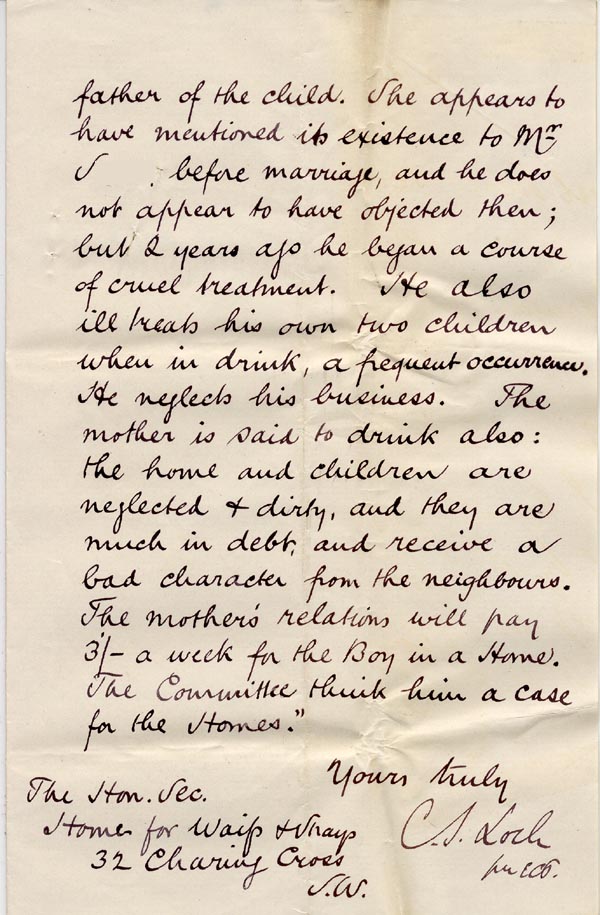 father of the child. She appears to
have mentioned its existence to Mr
S before marriage, and he does
not appear to have objected then;
but 2 years ago he began a course
of cruel treatment. He also
ill treats his own two children
when in drink, a frequent occurrence.
He neglects his business. The
mother is said to drink also:
the home and children are
neglected & dirty, and they are
much in debt, and receive a
bad character from the neighbours.
The mother's relations will pay
3/- a week for the Boy in a Home.
The Committee think him a case
for the Homes."
Yours truly
C. S. Loch
The Hon. Sec.
Homes for Waifs & Strays
32 Charing Cross
S.W.